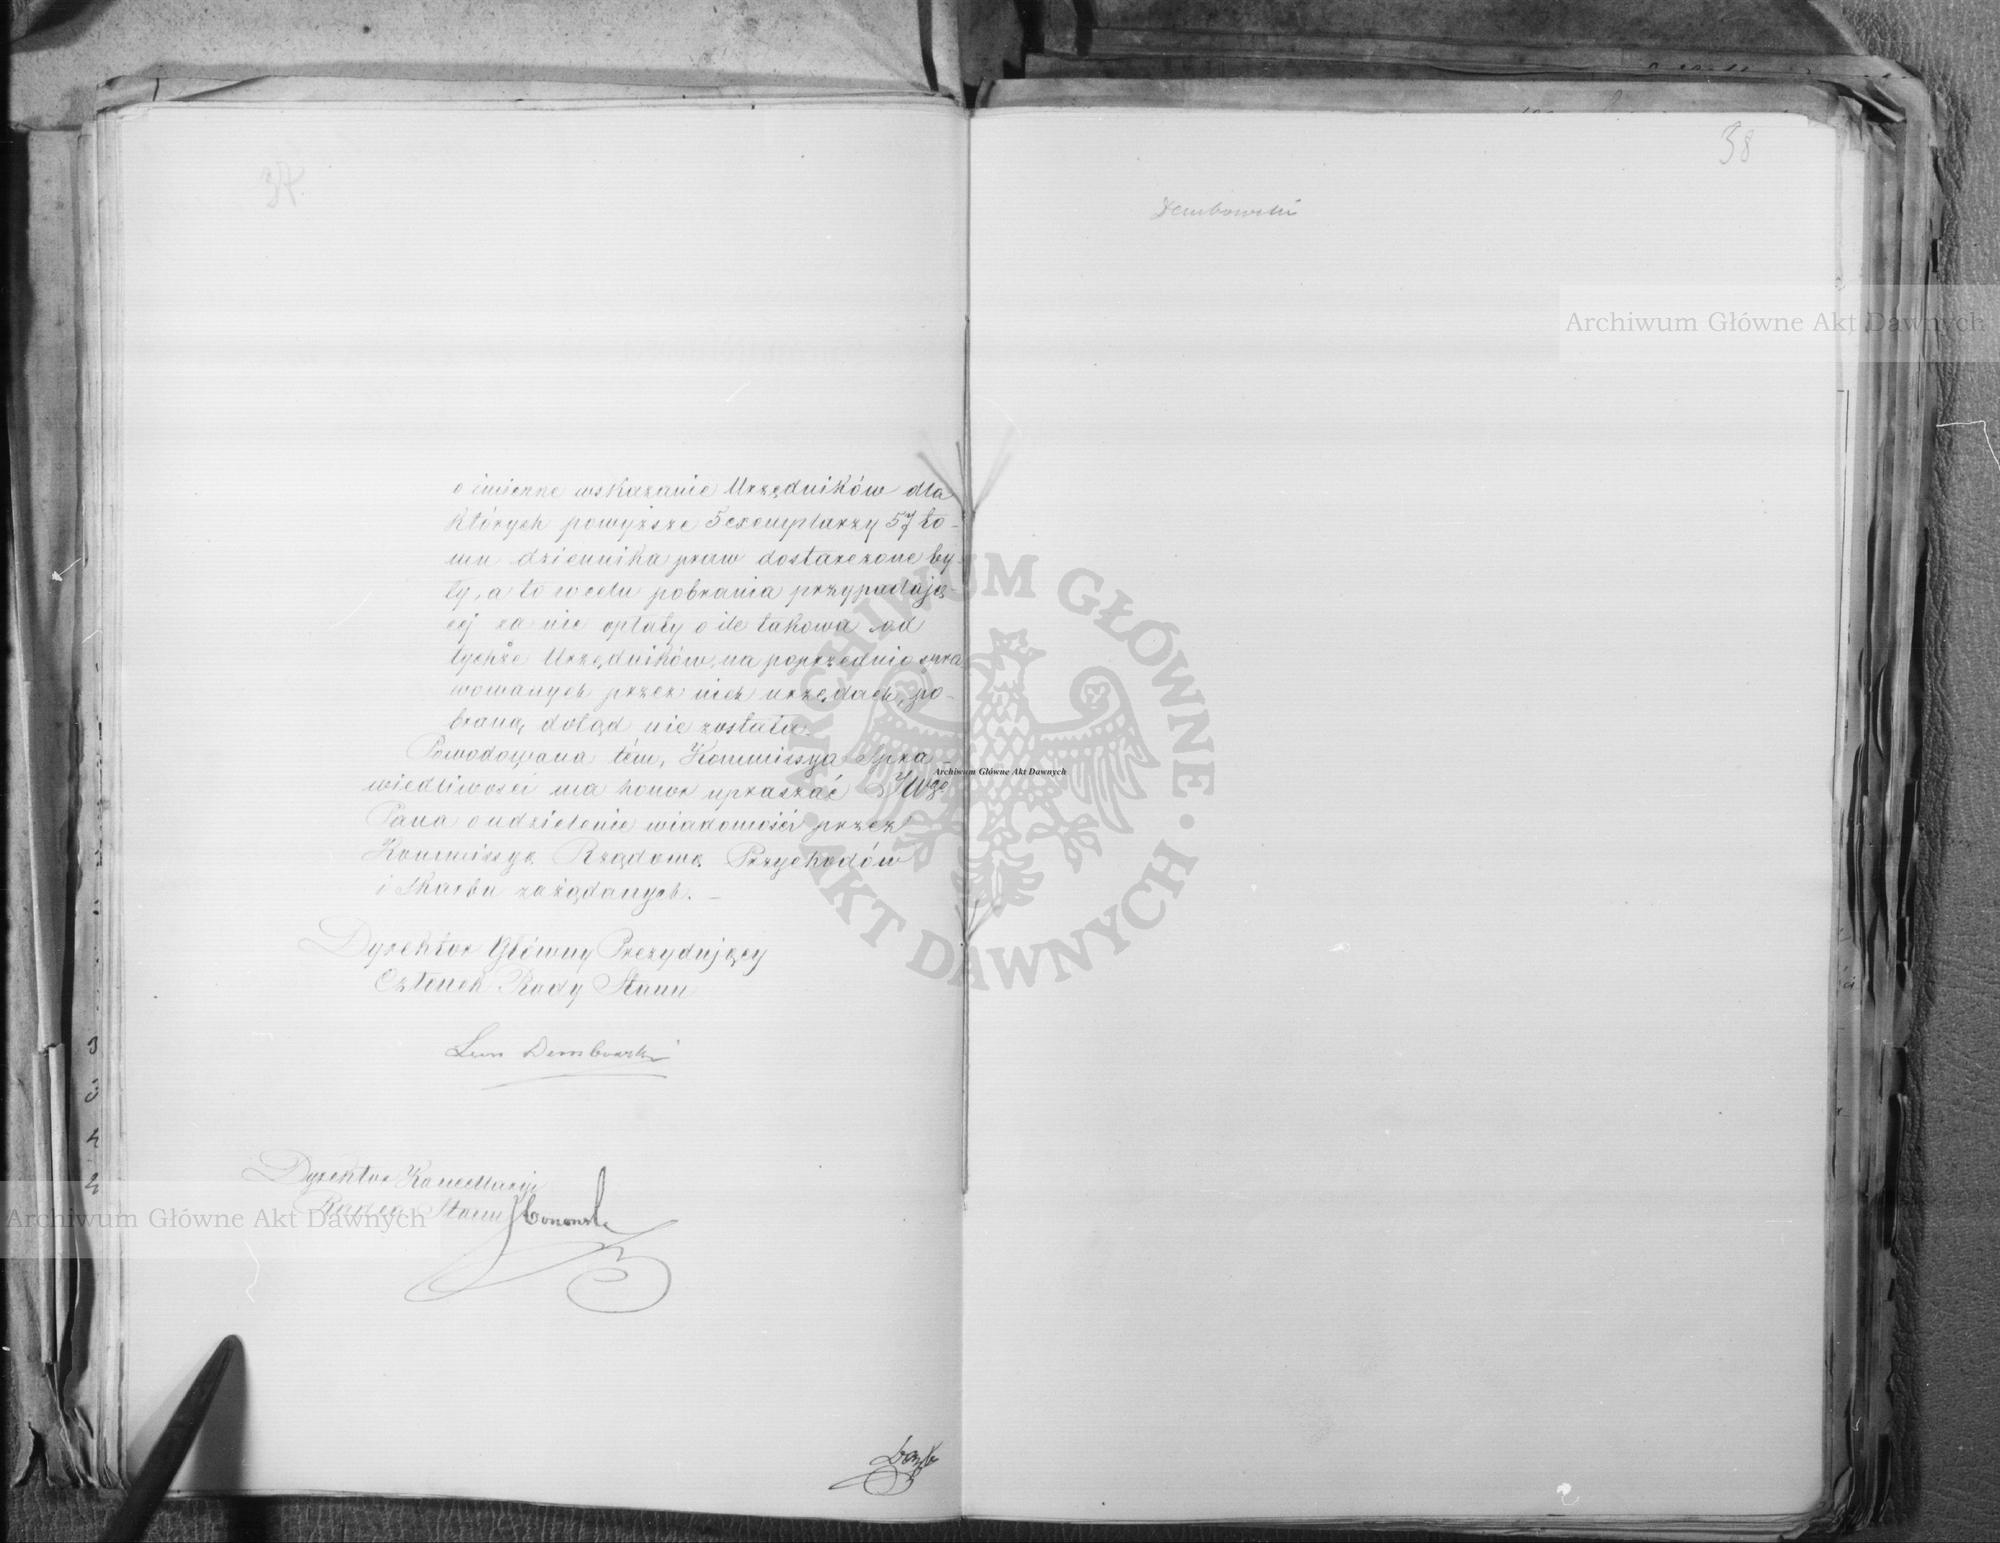 37.
o imienne wskazanie Urzędników dla
których powyższe 5 exemplarzy 57 to-
mu dziennika praw dostarczone by-
ły, a to w celu pobrania przypadają-
cej za nie opłaty o ile takowa od
tychże Urzędników, na poprzednio spra-
wowanych przez nich urzędach, po-
braną dotąd nie została.
Powodowana tém, Kommissya Spra-
wiedliwości ma honor upraszać JWgo
Pana o udzielenie wiadomości przez
Kommissyę Rządową Przychodów
i Skarbu zażądanych. —
Dyrektor Główny Prezydujący
Członek Rady Stanu
Leon Dembowski
Dyrektor Kancellaryi
Radca Stanu
38
Dembowski
Archiwum Główne Akt Dawnych
ARCHIWUM GŁÓWNE · AKT DAWNYCH ·
Archiwum Główne Akt Dawnych
Archiwum Główne Akt Dawnych